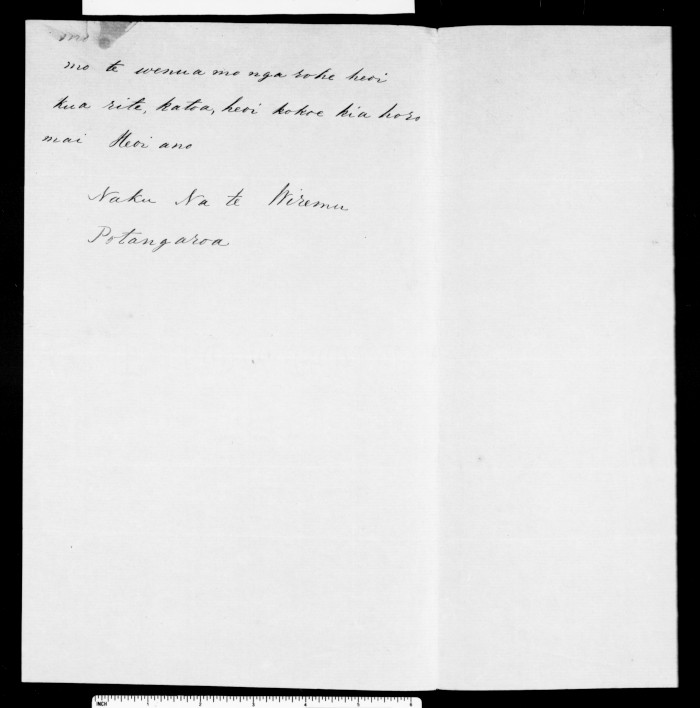 mo te wenua mo nga rohe heoi
kua rite, katoa, heoi kokoe kia horo
mai Heoi ano
Naku Na te Wiremu
Potangaroa
INCH 1 2 3 4 5 6